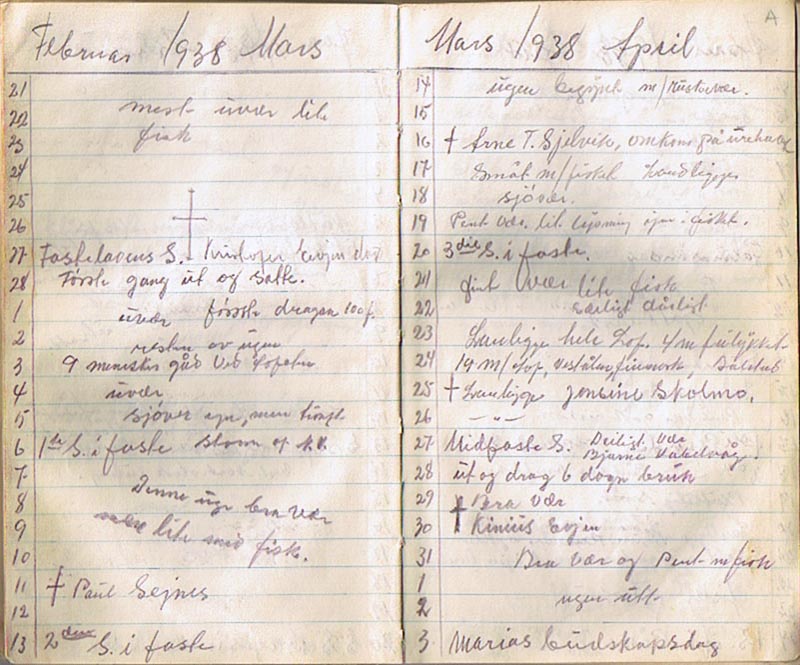 Februar 1938 Mars
21
22 mest uvær lite
23 fisk
24
25
26
27 Fastelavens S.
28 Første gang ut og satte.
1 uvær første dragen 100 f.
2 resten av ugen
3 9 mennesker gåd ved Lofoten
4 uvær
5 sjøver igen, men tungt
6 1ste S. i faste Storm af
7
8 Denne uge bra vær
9 men lite med fisk.
10
11 † Paul Sejnes
12
13 2den S. i faste
A
Mars 1938 April
14 ugen begynt m/
15
16 † Arne T. Sjelvik, omkom på
17 Smått m/fisket Landligge
18 sjøvær.
19 Pent vær. lit lysning igen i fisket.
20 3die S. i faste.
21 fint vær lite fisk
22 særligt dårligt
23 Landligge hele Lof.
24 19 m/
25 † Landligge Jensine Skolmo.
26 - „ -
27 Midfaste S. Deiligt Vær
Bjarne
28 ut og drag 6 døgn bruk
29 Bra Vær
30 † Kinius Evjen
31 Bra Vær og Pent m/fisk
1
2 ugen utt
3 Marias budskapsdag